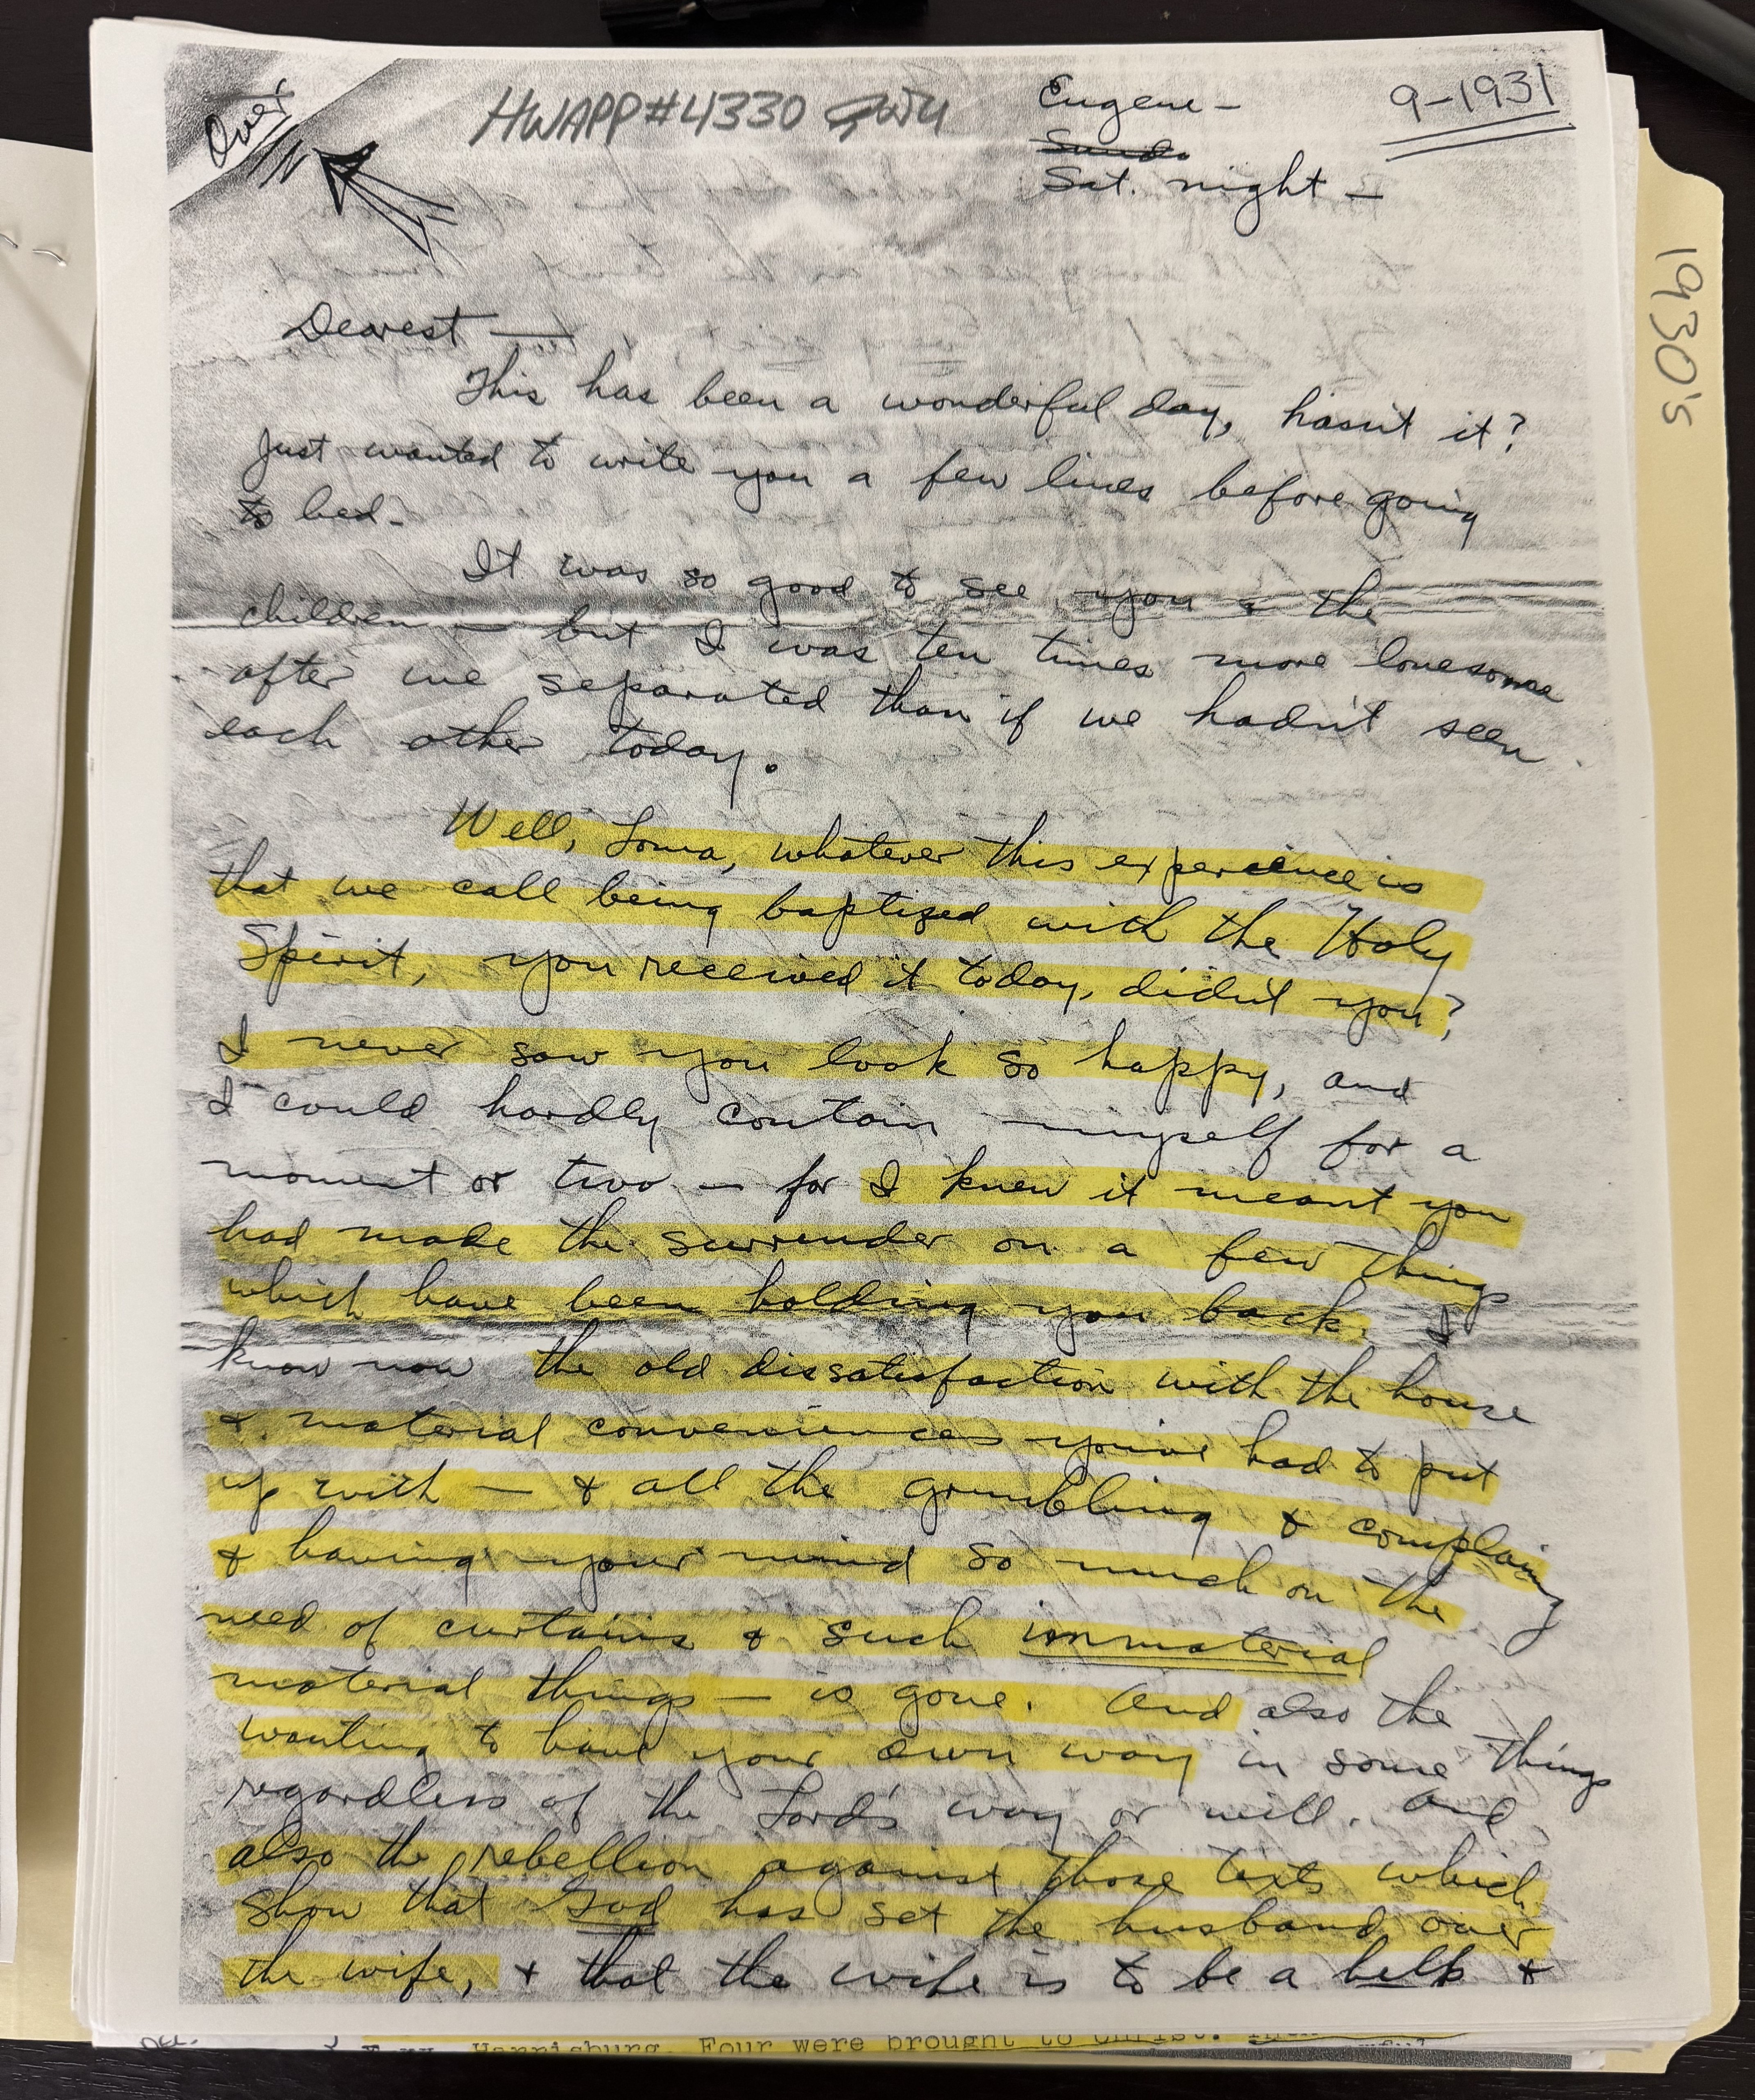 Over
HWAPP#4330
Eugene —
9-1931
Sat. night —
1930's
Dearest —
This has been a wonderful day, hasn't it?
Just wanted to write you a few lines before going
to bed.
It was so good to see you & the
children — but I was ten times more lonesome
after we separated than if we hadn't seen
each other today.
Well, Loma, whatever this experience is
that we call being baptized with the Holy
Spirit, you received it today, didn't you?
I never saw you look so happy, and
I could hardly contain myself for a
moment or two — for I knew it meant you
had made the surrender on a few things
which have been holding you back. I
know now the old dissatisfaction with the house
& material conveniences you've had to put
up with — & all the grumbling & complaining
& having your mind so much on the
need of curtains & such immaterial
material things — is gone. And also the
wanting to have your own way in some things
regardless of the Lord's way or will. And
also the rebellion against those texts which
show that God has set the husband over
the wife, & that the wife is to be a help &
Harrisburg. Four were brought to Christ.